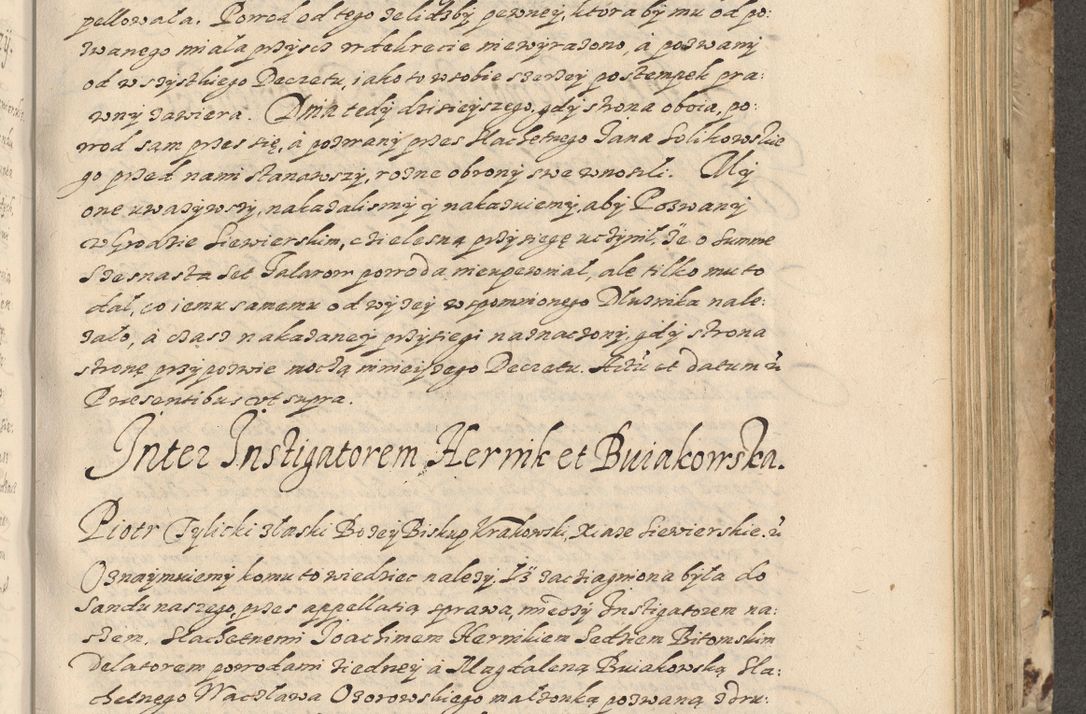 pellowała. Powod od tego že liczby pewney, ktora by mu od po:
zwanego miała przyscz w dekrecie niewyrazono, á pozwany
od wszystkiego Decretu, iako to w sobie szerzey postempek pra:
wny zawiera. Dnia tedy dzisieyszego, gdy strona oboia, po:
wod sam przes się, á pozwany przes Slachetnego Jana Solikowskie
go przed nami stanawszy, rozne obrony swe wnosili. My
one uwazywszy, nakazalismy y nakazuiemy, aby Pozwany
w Grodzie Siewierskim, cżielesną przysięgę uczynił, że o Summe
szesnastą set Talarow powoda nieupewniał, ale tilko mu to
dał, co iemu samemu od wyzey wspomnionego Dłuznika nale:
zało, á czasz nakazaney przysiegi naznaczony, gdy strona
stronę przypozwie mocżą ninieyszego Decretu. Actū et datum ū
Præsentibus vt supra.
Inter Instigatorem, Hernik et Buiakowska.
Piotr Tylicki z łaski Bozey Biskup Krakowski, Xiąze Siewierskie. ū
Oznaymuiemy komu to wiedziec nalezy, Iż zacziągniona była do
Sandu naszego, przes appellatią sprawa, miedzy Instigatorem na:
szem, Slachetnemi Joachimem Hernikiem Sedziem Bitomskim
Delatorem powodami ziedney á Magdaleną Buiakowską Sla:
chetnego Wacżława Ozorowskiego małżonką pozwaną zdru: